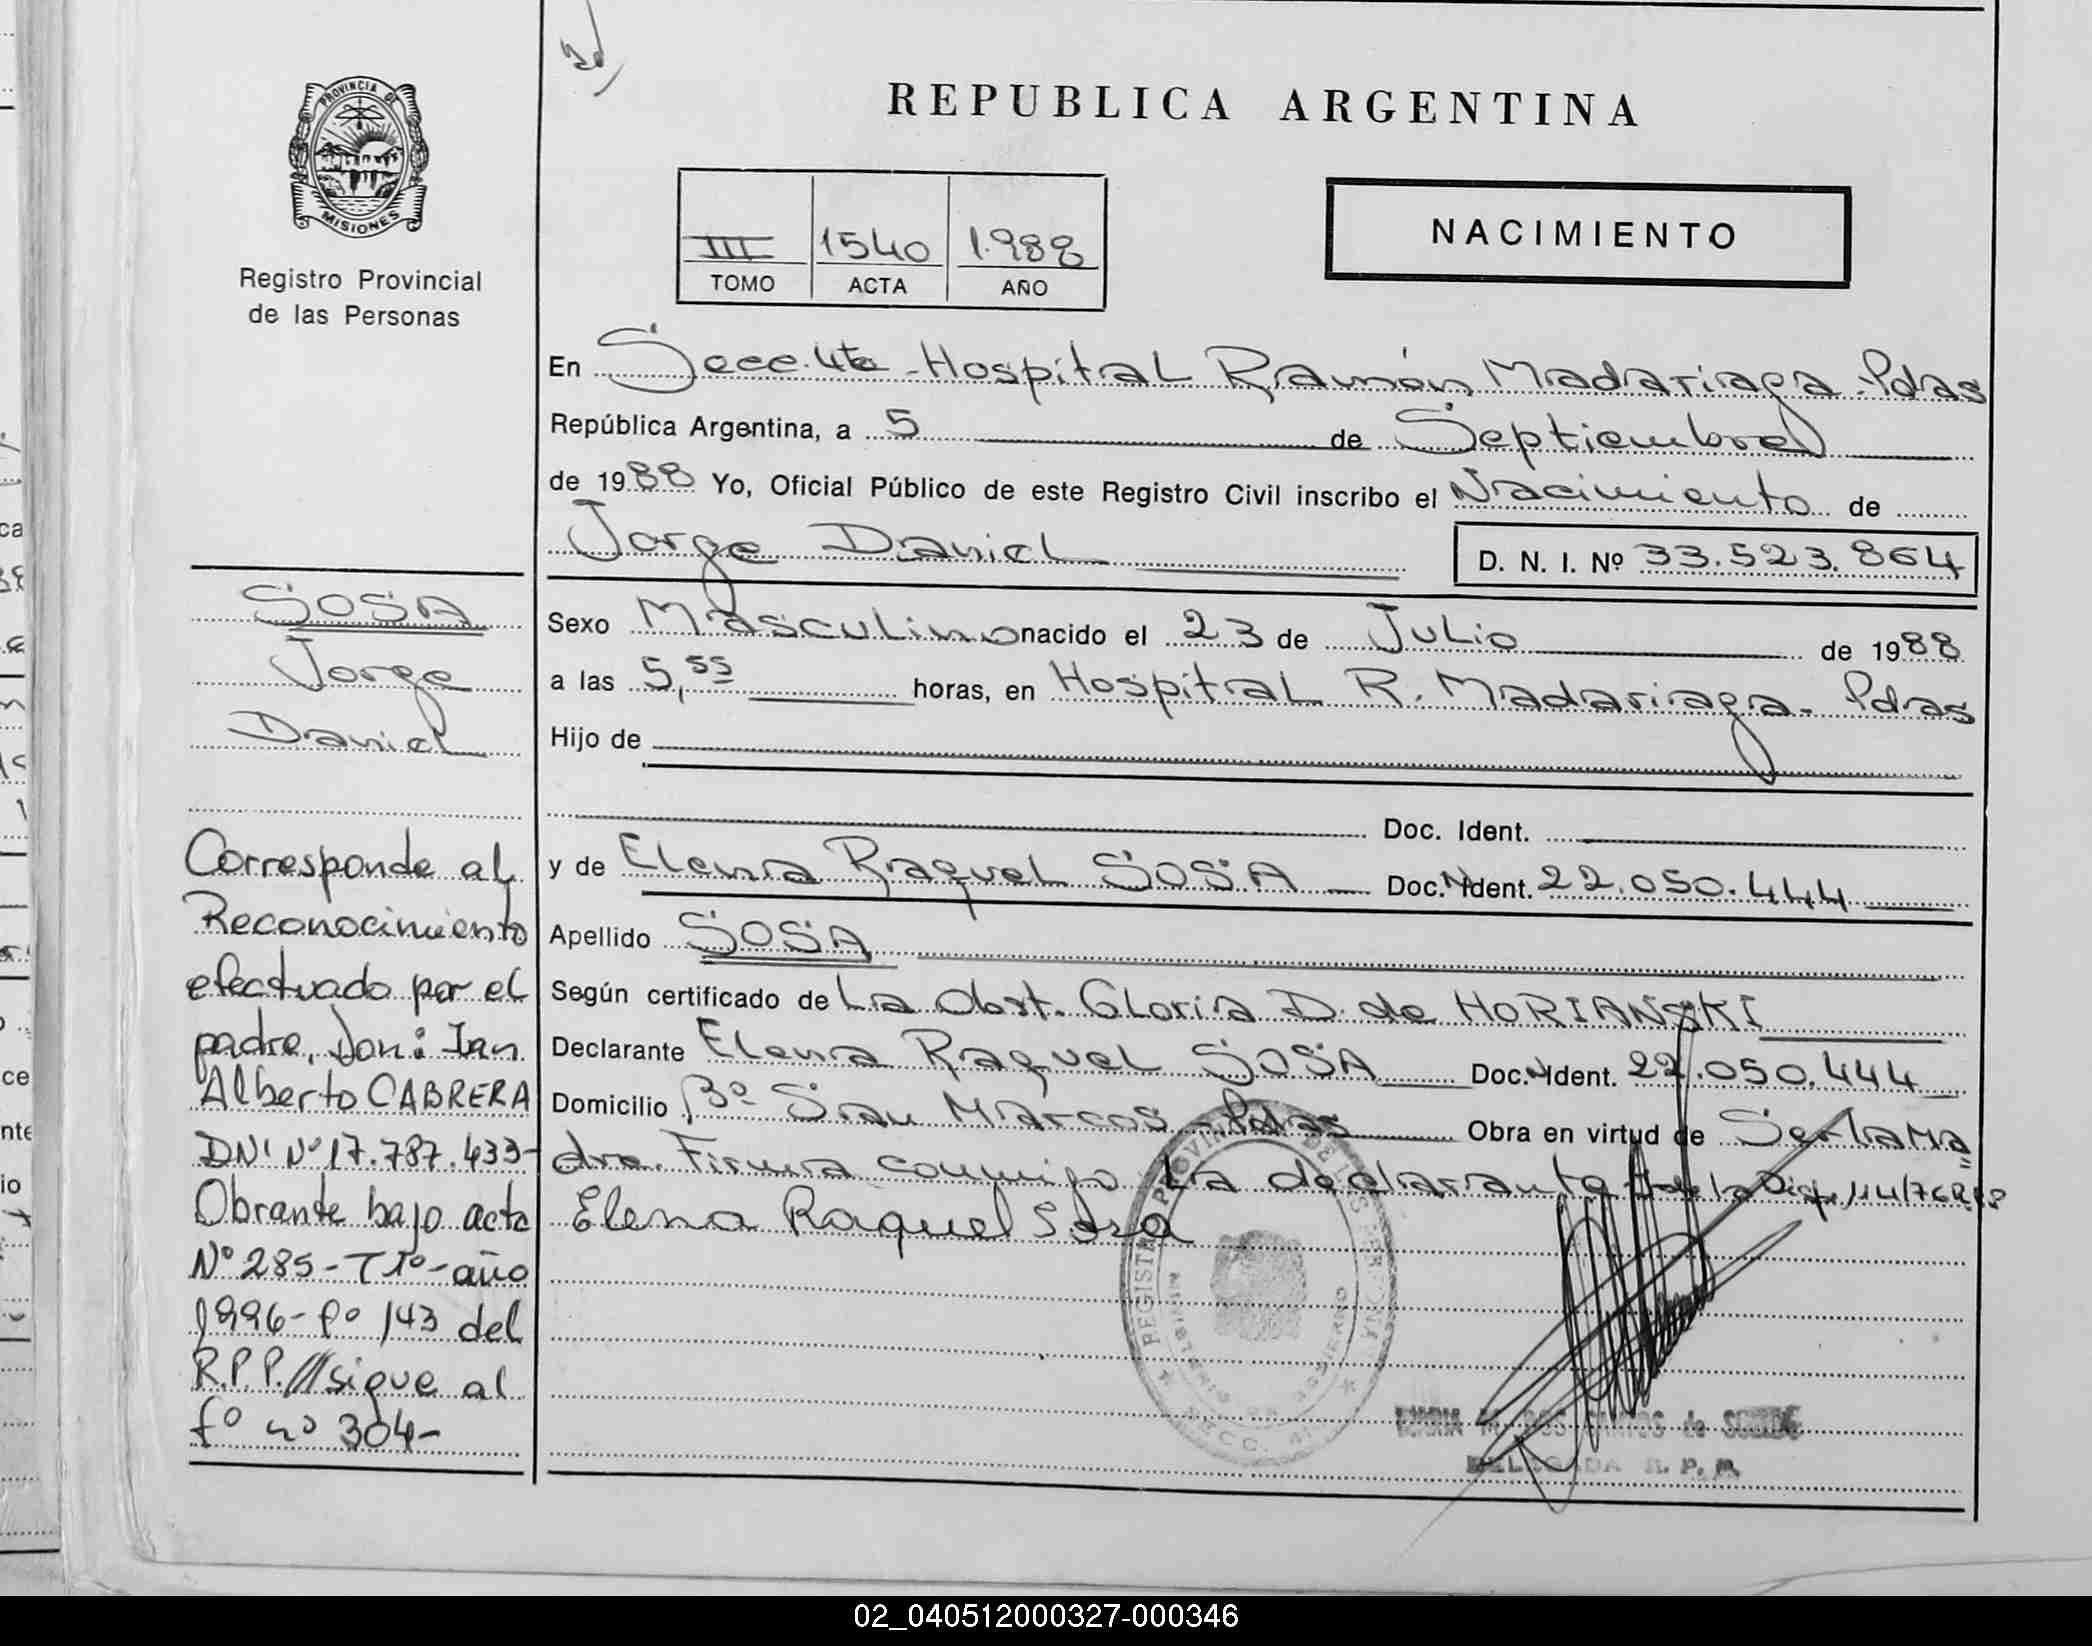 PROVINCIA DE
MISIONES
Registro Provincial
de las Personas
REPUBLICA ARGENTINA
III 1540 1.988
TOMO ACTA AÑO
NACIMIENTO
En Secc. 4ta - Hospital Ramón Madariaga - Pdas
República Argentina, a 5 de Septiembre
de 1988 Yo, Oficial Público de este Registro Civil inscribo el Nacimiento de
Jorge Daniel
D. N. I. Nº 33.523.864
Sexo Masculino nacido el 23 de Julio de 1988
a las 5,55 horas, en Hospital R. Madariaga - Pdas
Hijo de
Doc. Ident.
y de Elena Raquel SOSA Doc. N Ident. 22.050.444
Apellido SOSA
Según certificado de La Obst. Gloria D. de HORIANSKI
Declarante Elena Raquel SOSA Doc. N Ident. 22.050.444
Domicilio Bº San Marcos - Pdas Obra en virtud de Ser la Ma
dre. Firma conmigo la declarante
Elena Raquel Sosa
SOSA
Jorge
Daniel
Corresponde al
Reconocimiento
efectuado por el
padre, Don: Ian
Alberto CABRERA
DNI Nº 17.787.433-
Obrante bajo acta
Nº 285 - T 1º - año
1996 - fº 143 del
R.P.P. // sigue al
fº nº 304-
DELEGADA R. P. P.
02_040512000327-000346